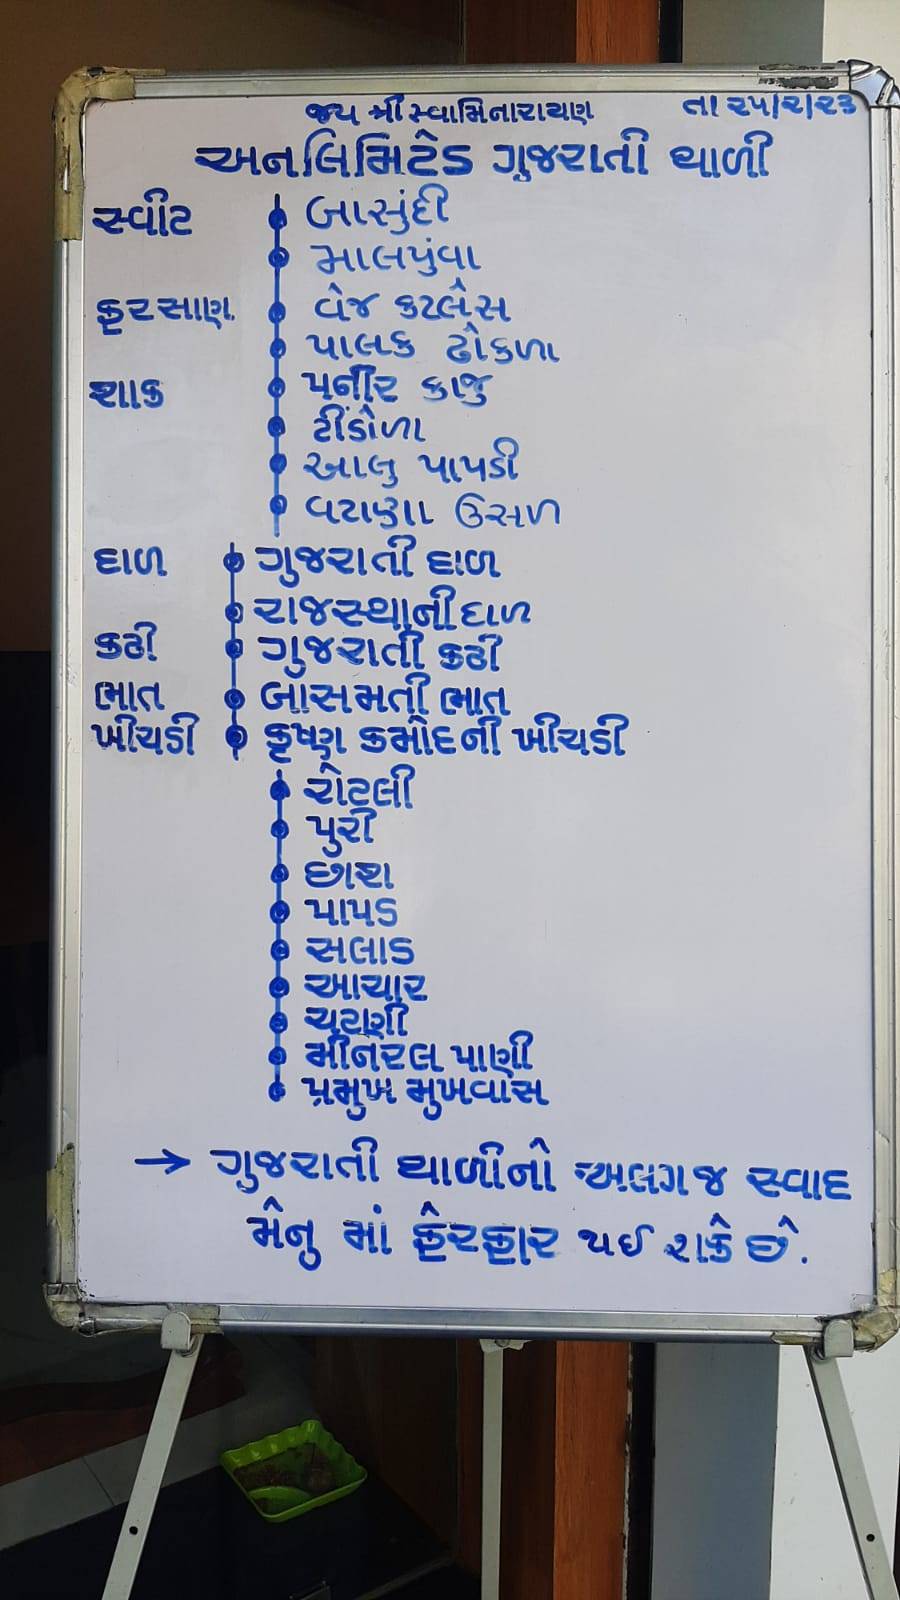 જય શ્રી સ્વામિનારાયણ તા ૨૫/૨/૨૩
અનલિમિટેડ ગુજરાતી થાળી
સ્વીટ બાસુંદી
માલપુંવા
ફરસાણ વેજ કટલેસ
પાલક ઢોકળા
શાક પનીર કાજુ
ટીંડોળા
આલુ પાપડી
વટાણા ઉસળ
દાળ ગુજરાતી દાળ
રાજસ્થાની દાળ
કઢી ગુજરાતી કઢી
ભાત બાસમતી ભાત
ખીચડી કૃષ્ણ કમોદની ખીચડી
રોટલી
પુરી
છાશ
પાપડ
સલાડ
આચાર
ચટણી
મીનરલ પાણી
પ્રમુખ મુખવાસ
→ ગુજરાતી થાળીનો અલગજ સ્વાદ
મેનુ માં ફેરફાર થઈ શકે છે.